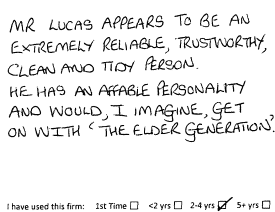 MR LUCAS APPEARS TO BE AN
EXTREMELY RELIABLE, TRUSTWORTHY,
CLEAN AND TIDY PERSON.
HE HAS AN AFFABLE PERSONALITY
AND WOULD, I IMAGINE, GET
ON WITH 'THE ELDER GENERATION'.
I have used this firm: 1st Time ☐ <2 yrs ☐ 2-4 yrs ☑ 5+ yrs ☐